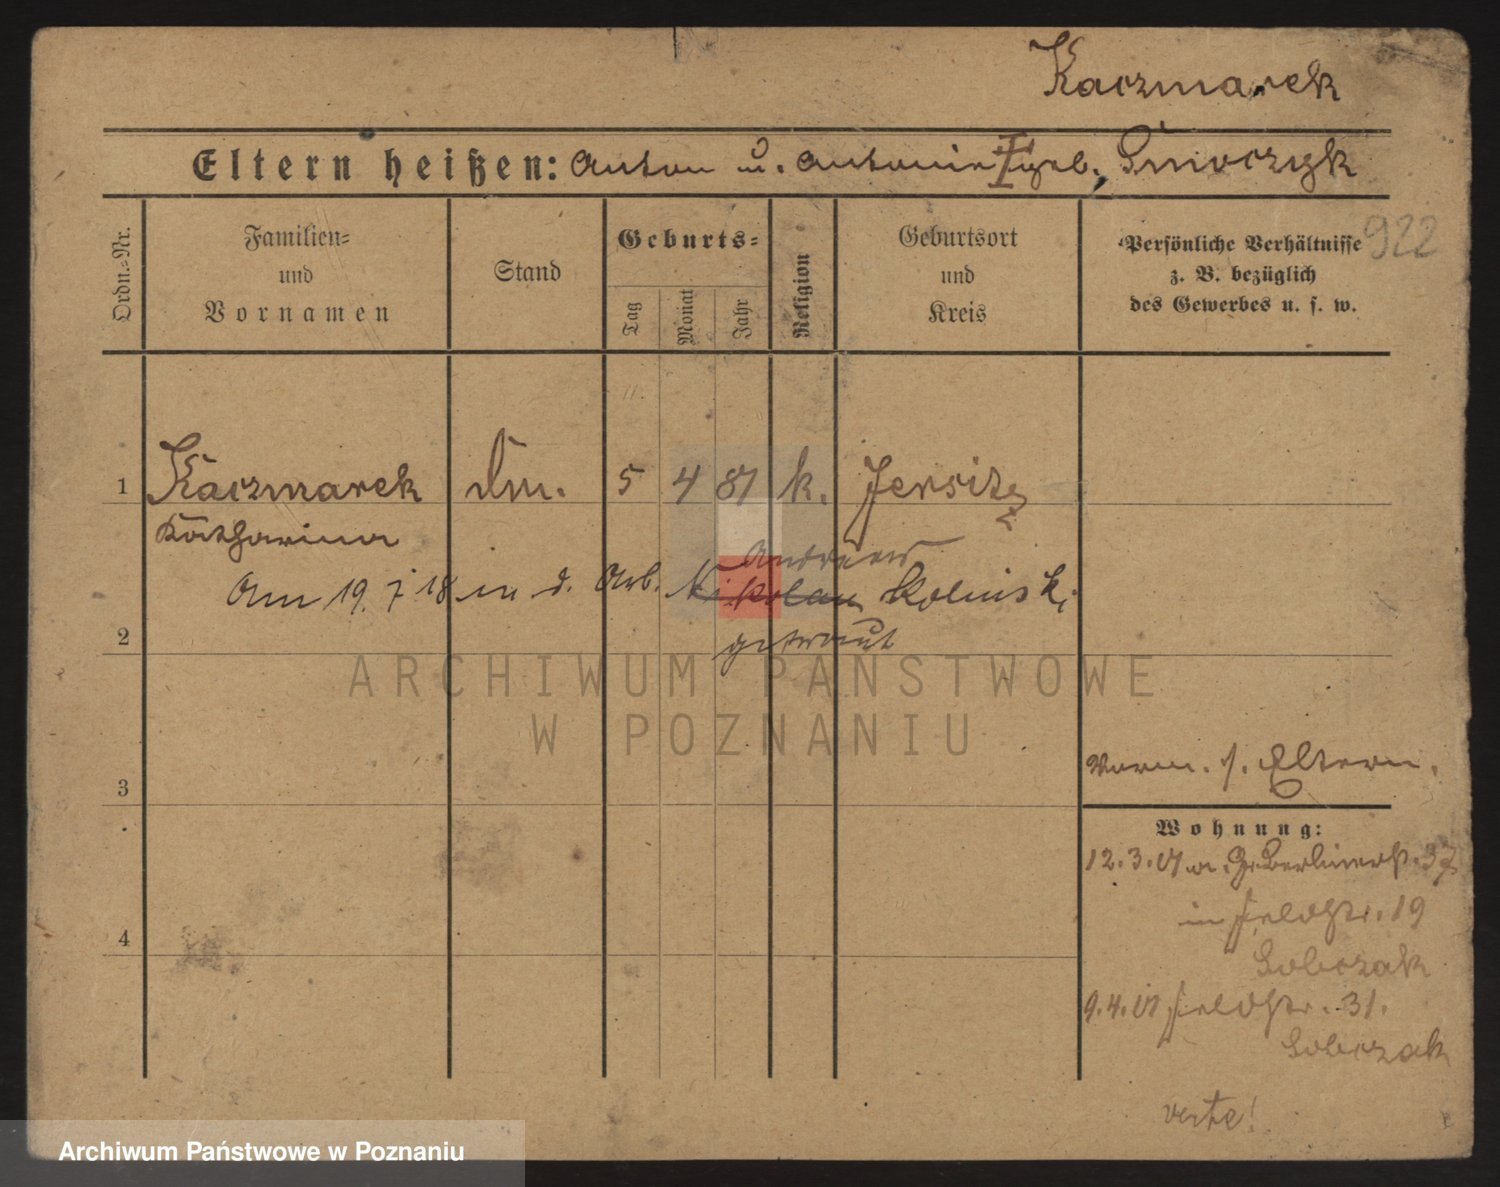 Kaczmarek
Eltern heißen: Anton u. Antonie geb.
922
Ordn.=Nr.
Familien=
und
Vornamen
Stand
Geburts=
Tag
Monat
Jahr
Religion
Geburtsort
und
Kreis
Persönliche Verhältnisse
z. B. bezüglich
des Gewerbes u. s. w.
1 Kaczmarek 5 4 81 k. Jersitz
Katharina
Andreas
Am 19. 7 18 m. d. Arb. Nikolaus Kolinski
getraut
2
ARCHIWUM PAŃSTWOWE
W POZNANIU
3
Vorm. s. Eltern.
Wohnung:
12.3.01 a. Gr. Berlinerst. 37
in Feldstr. 19
Sobczak
4
9.4.01 Feldstr. 31.
Sobczak
verte!
Archiwum Państwowe w Poznaniu